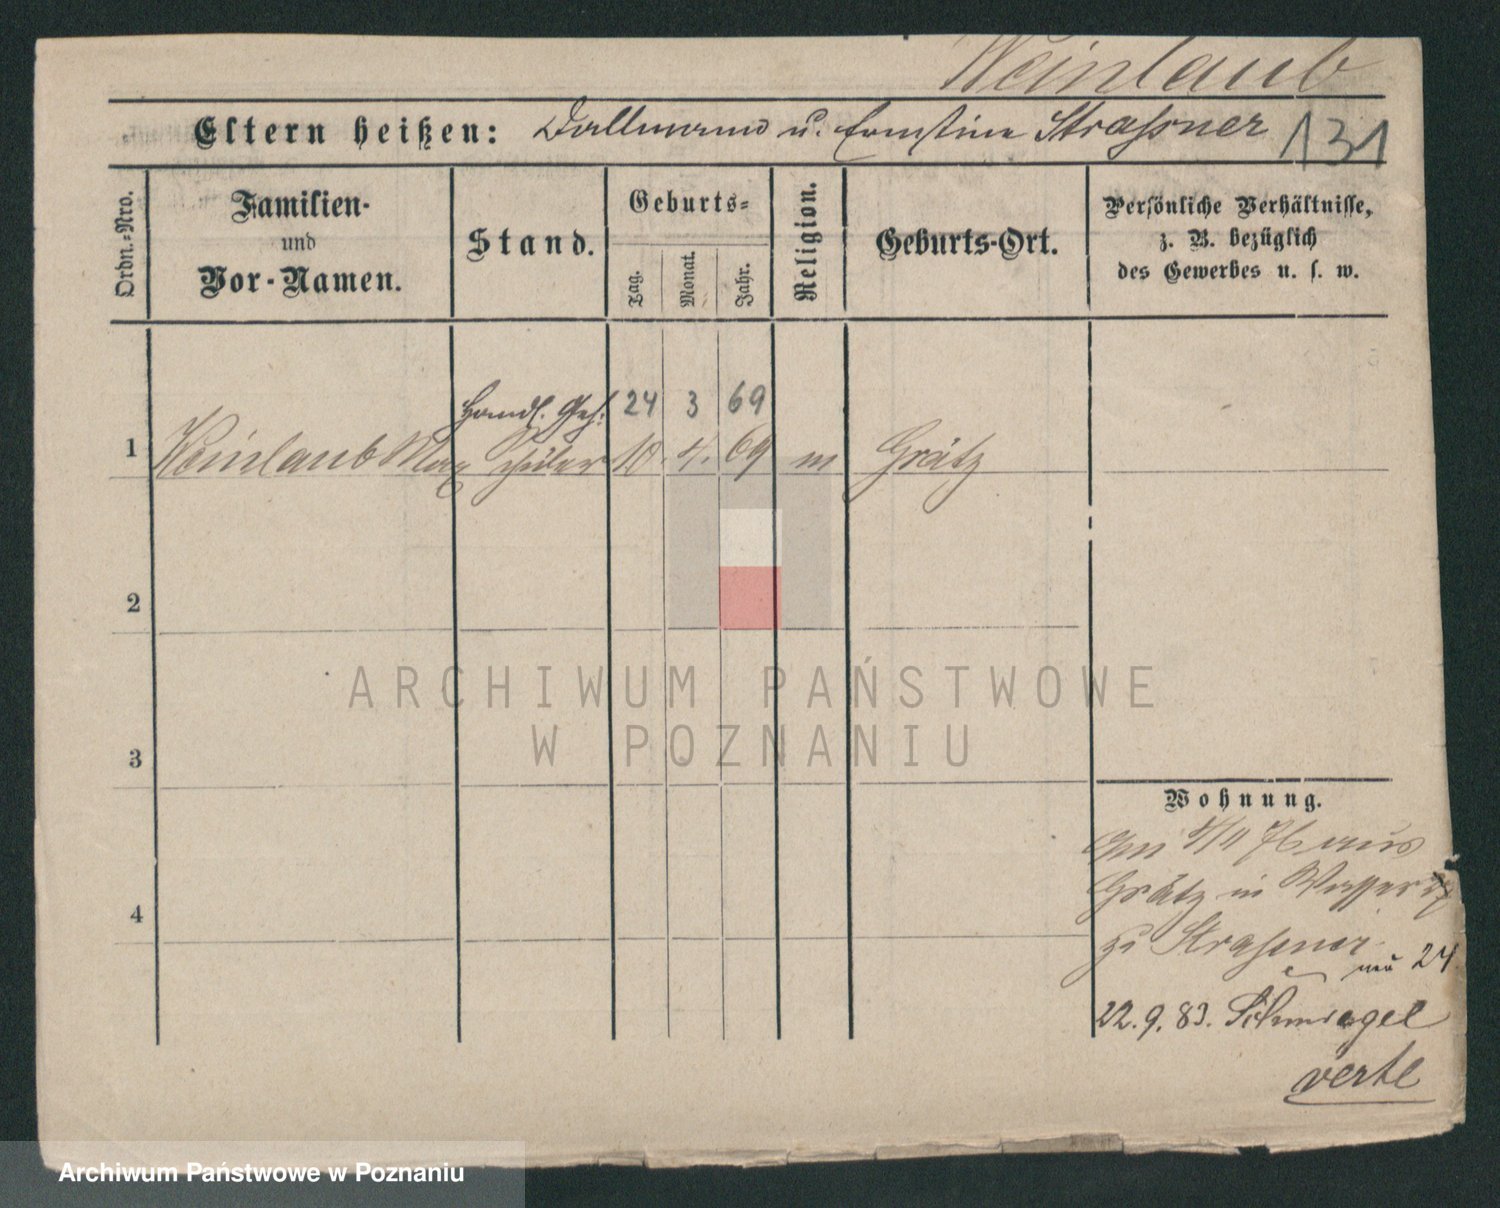 Weinlaub
Eltern heißen: Dallmann u. Ernstine Straßner 131
Ordn.-Nro.
Familien-
und
Vor-Namen.
Stand.
Geburts-
Tag.
Monat.
Jahr.
Religion.
Geburts-Ort.
Persönliche Verhältnisse,
z. B. bezüglich
des Gewerbes u. s. w.
Handl. Geh. 24 3 69
1 Weinlaub Max Schüler 10. 4. 69 m Grätz
2
3
4
Wohnung.
Am 4/11 76 aus
Grätz in Wasser
zu Straßner
neu 24
22.9.83. Schmiegel
verte
ARCHIWUM PAŃSTWOWE
W POZNANIU
Archiwum Państwowe w Poznaniu